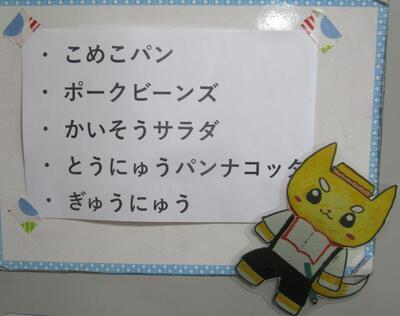 ・ こめこパン
・ ポークビーンズ
・ かいそうサラダ
・ とうにゅうパンナコッタ
・ ぎゅうにゅう